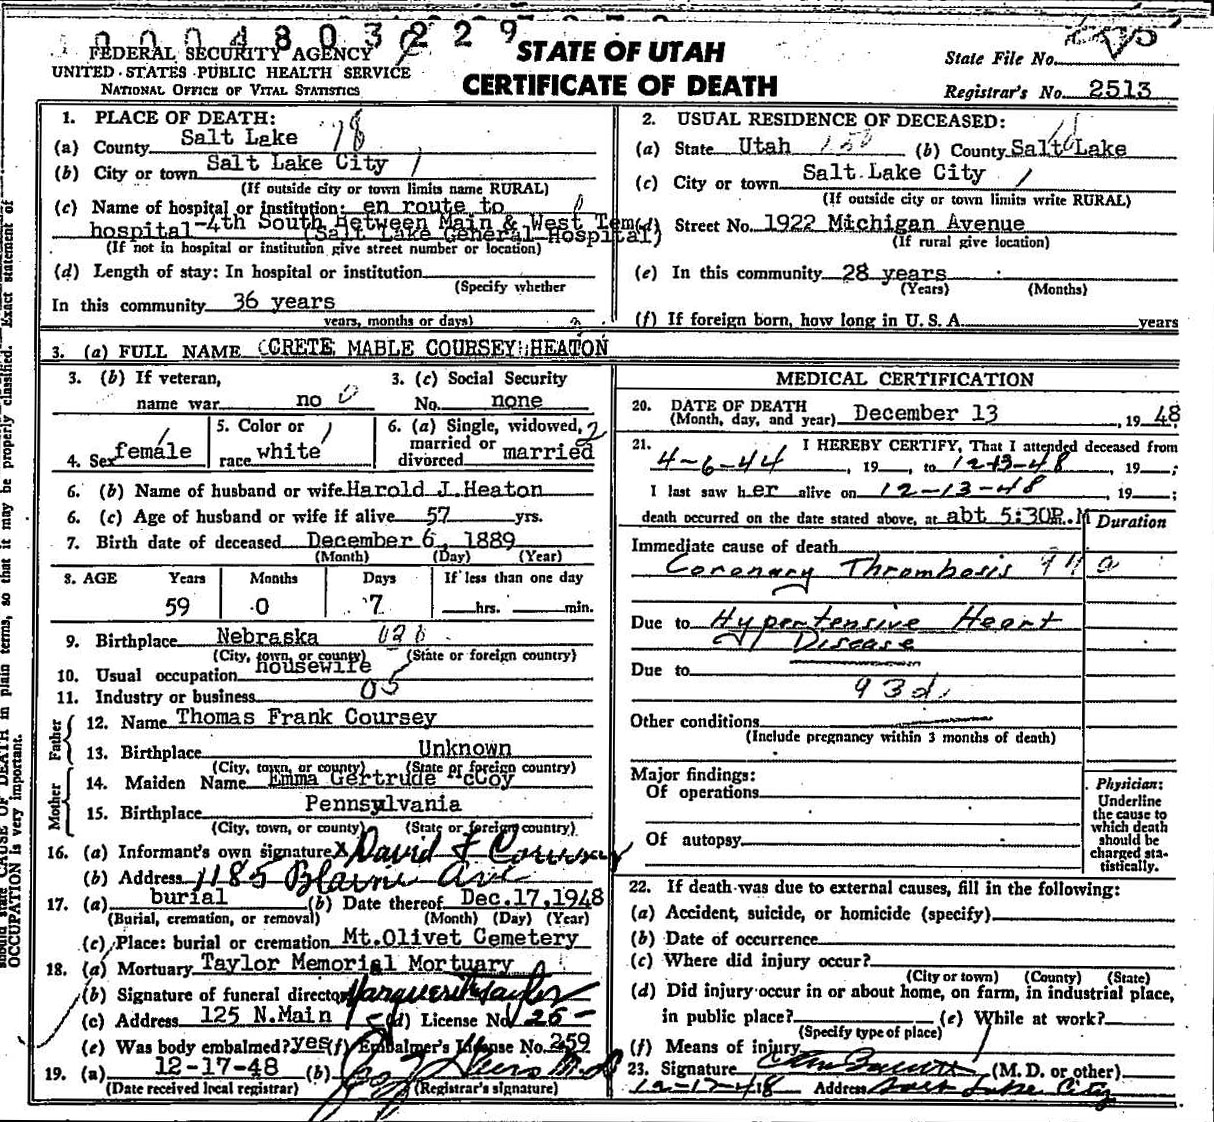 0 0 0 4 8 0 3 2 2 9
FEDERAL SECURITY AGENCY
UNITED STATES PUBLIC HEALTH SERVICE
NATIONAL OFFICE OF VITAL STATISTICS
STATE OF UTAH
CERTIFICATE OF DEATH
State File No.
Registrar's No. 2513
1. PLACE OF DEATH:
(a) County Salt Lake 18
(b) City or town Salt Lake City 1
(If outside city or town limits name RURAL)
(c) Name of hospital or institution: en route to
hospital-4th South Between Main & West Tem
(Salt Lake General Hospital)
(If not in hospital or institution give street number or location)
(d) Length of stay: In hospital or institution
(Specify whether
In this community 36 years
years, months or days)
2. USUAL RESIDENCE OF DECEASED:
(a) State Utah (b) County Salt Lake
(c) City or town Salt Lake City 1
(If outside city or town limits write RURAL)
(d) Street No. 1922 Michigan Avenue
(If rural give location)
(e) In this community 28 years
(Years) (Months)
(f) If foreign born, how long in U. S. A. years
3. (a) FULL NAME CRETE MABLE COURSEY HEATON
3. (b) If veteran,
name war no 0
3. (c) Social Security
No. none
4. Sex female 1
5. Color or
race white 1
6. (a) Single, widowed, 2
married or
divorced married
6. (b) Name of husband or wife Harold J. Heaton
6. (c) Age of husband or wife if alive 57 yrs.
7. Birth date of deceased December 6, 1889
(Month) (Day) (Year)
8. AGE Years Months Days If less than one day
59 0 7 hrs. min.
9. Birthplace Nebraska 026
(City, town, or county) (State or foreign country)
10. Usual occupation housewife
11. Industry or business 05
Father
12. Name Thomas Frank Coursey
13. Birthplace Unknown
(City, town, or county) (State or foreign country)
Mother
14. Maiden Name Emma Gertrude McCoy
15. Birthplace Pennsylvania
(City, town, or county) (State or foreign country)
16. (a) Informant's own signature X David F Coursey
(b) Address 1185 Blaine Ave
17. (a) burial (b) Date thereof Dec.17,1948
(Burial, cremation, or removal) (Month) (Day) (Year)
(c) Place: burial or cremation Mt.Olivet Cemetery
18. (a) Mortuary Taylor Memorial Mortuary
(b) Signature of funeral director Marguerite Taylor
(c) Address 125 N.Main (d) License No. 25-
(e) Was body embalmed? yes (f) Embalmer's License No. 259
19. (a) 12-17-48 (b) M.D.
(Date received local registrar) (Registrar's signature)
MEDICAL CERTIFICATION
20. DATE OF DEATH
(Month, day, and year) December 13, 1948
21. I HEREBY CERTIFY, That I attended deceased from
4-6-44, 19 , to 12-13-48, 19 ;
I last saw her alive on 12-13-48, 19 ;
death occurred on the date stated above, at abt 5:30P.M Duration
Immediate cause of death
Coronary Thrombosis
Due to Hypertensive Heart
Disease
Due to
93d.
Other conditions
(Include pregnancy within 3 months of death)
Major findings:
Of operations
Of autopsy
Physician:
Underline
the cause to
which death
should be
charged sta-
tistically.
22. If death was due to external causes, fill in the following:
(a) Accident, suicide, or homicide (specify)
(b) Date of occurrence
(c) Where did injury occur?
(City or town) (County) (State)
(d) Did injury occur in or about home, on farm, in industrial place,
in public place? (e) While at work?
(Specify type of place)
(f) Means of injury
23. Signature (M. D. or other)
12-17-48 Address Salt Lake City
should state CAUSE OF DEATH in plain terms, so that it may be properly classified. Exact statement of
OCCUPATION is very important.